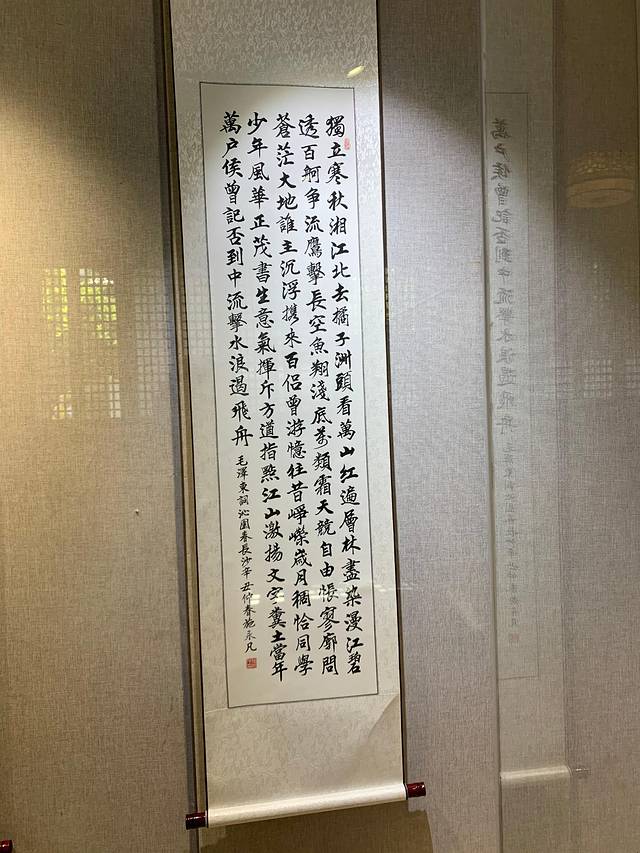 獨立寒秋湘江北去橘子洲頭看萬山红遍層林盡染漫江碧
透百舸争流鷹擊長空魚翔淺底萬類霜天競自由悵寥廓問
蒼茫大地誰主沉浮携來百侣曾游憶往昔崢嶸歲月稠恰同學
少年風華正茂書生意氣揮斥方遒指點江山激揚文字糞土當年
萬户侯曾記否到中流擊水浪遏飛舟 毛澤東詞沁園春長沙辛丑仲春施永凡